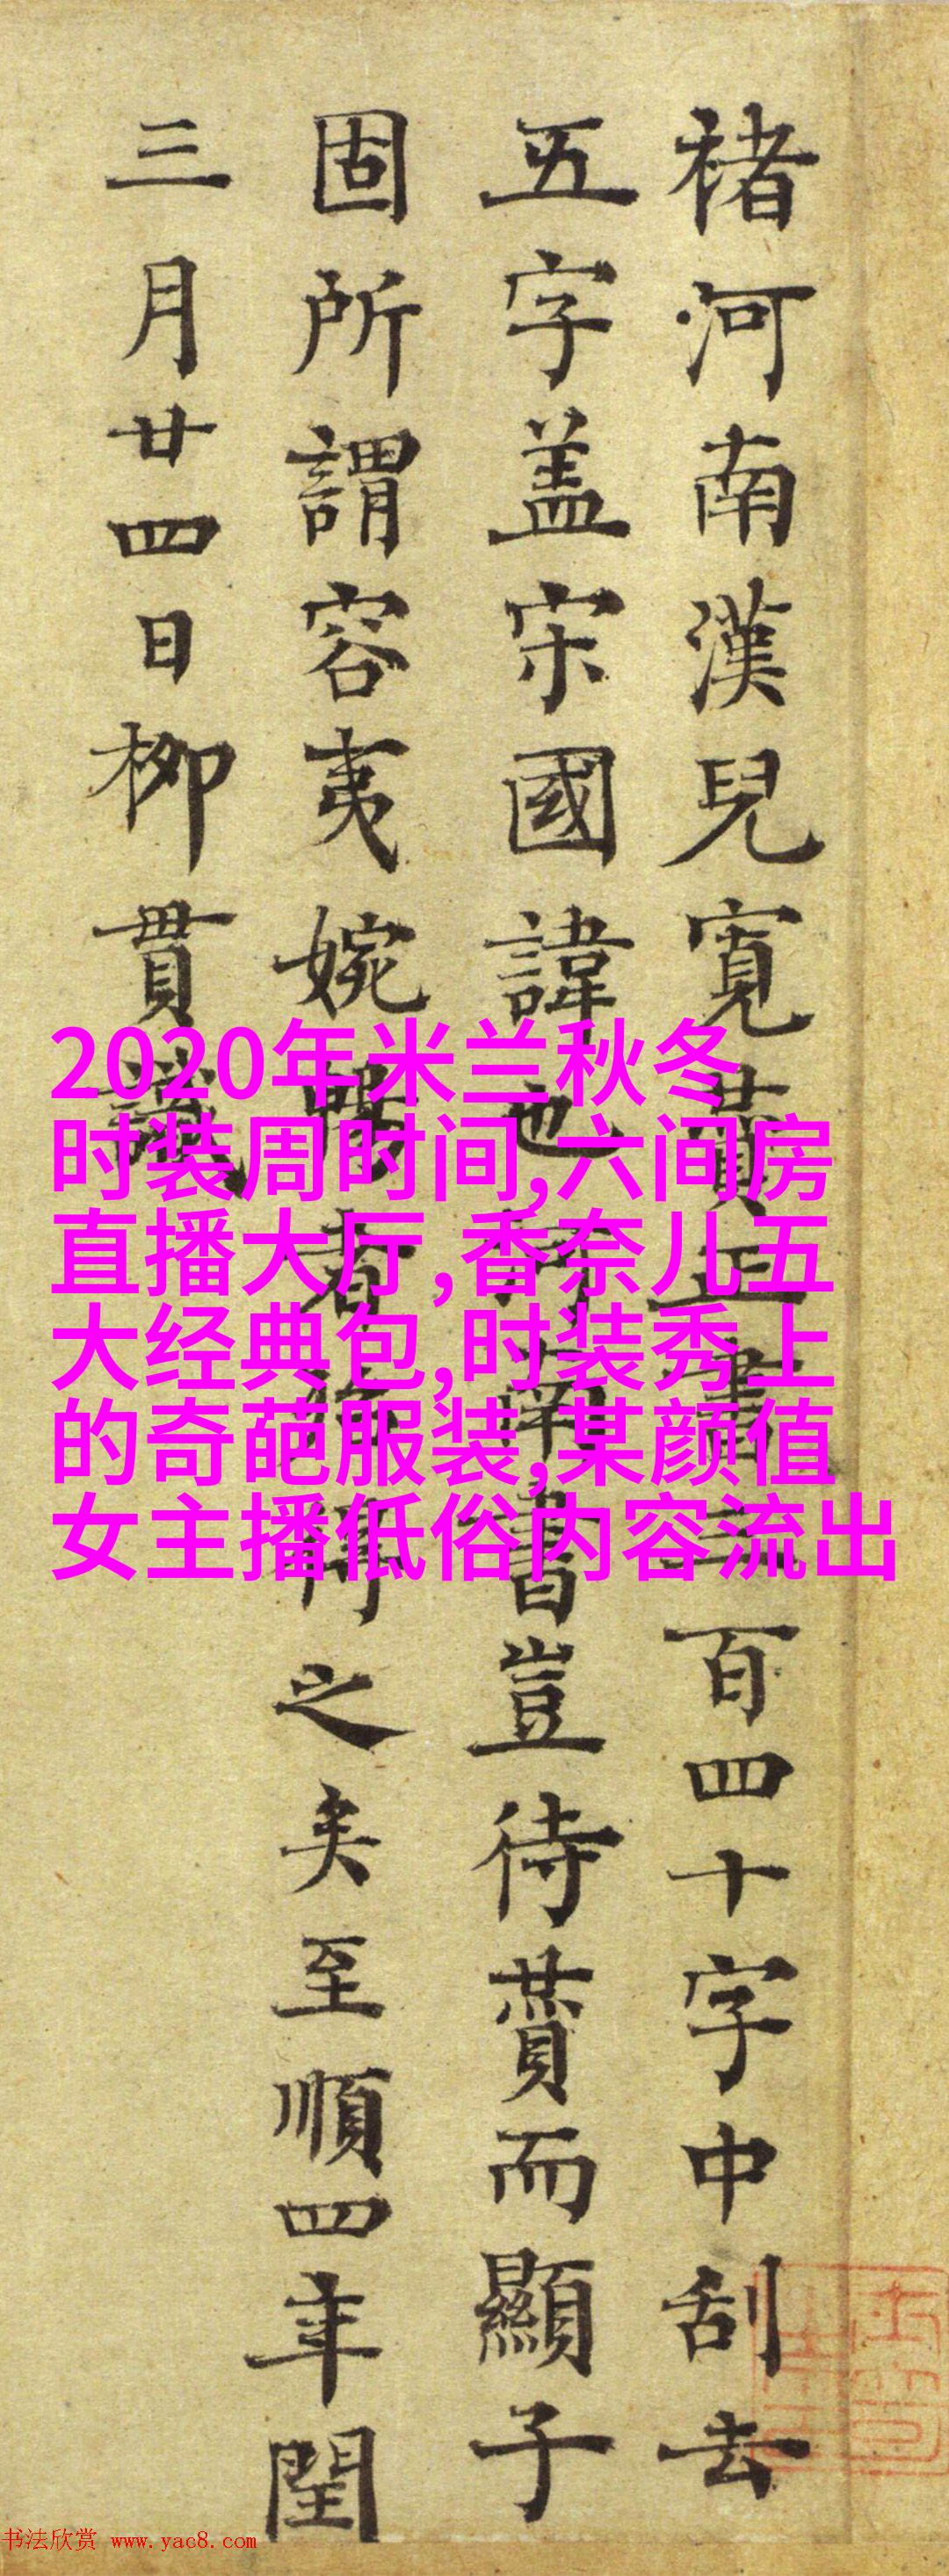 褚河南漢兒寬贊正書三百四十字中刮去
五字盖宋國諱也河南書豈待贊而顯子
固所謂容夷婉暢者得之矣至順四年閏
三月廿四日柳貫識
2020年米兰秋冬
时装周时间,六间房
直播大厅,香奈儿五
大经典包,时装秀上
的奇葩服装,某颜值
女主播低俗内容流出
书法欣赏 www.yac8.com